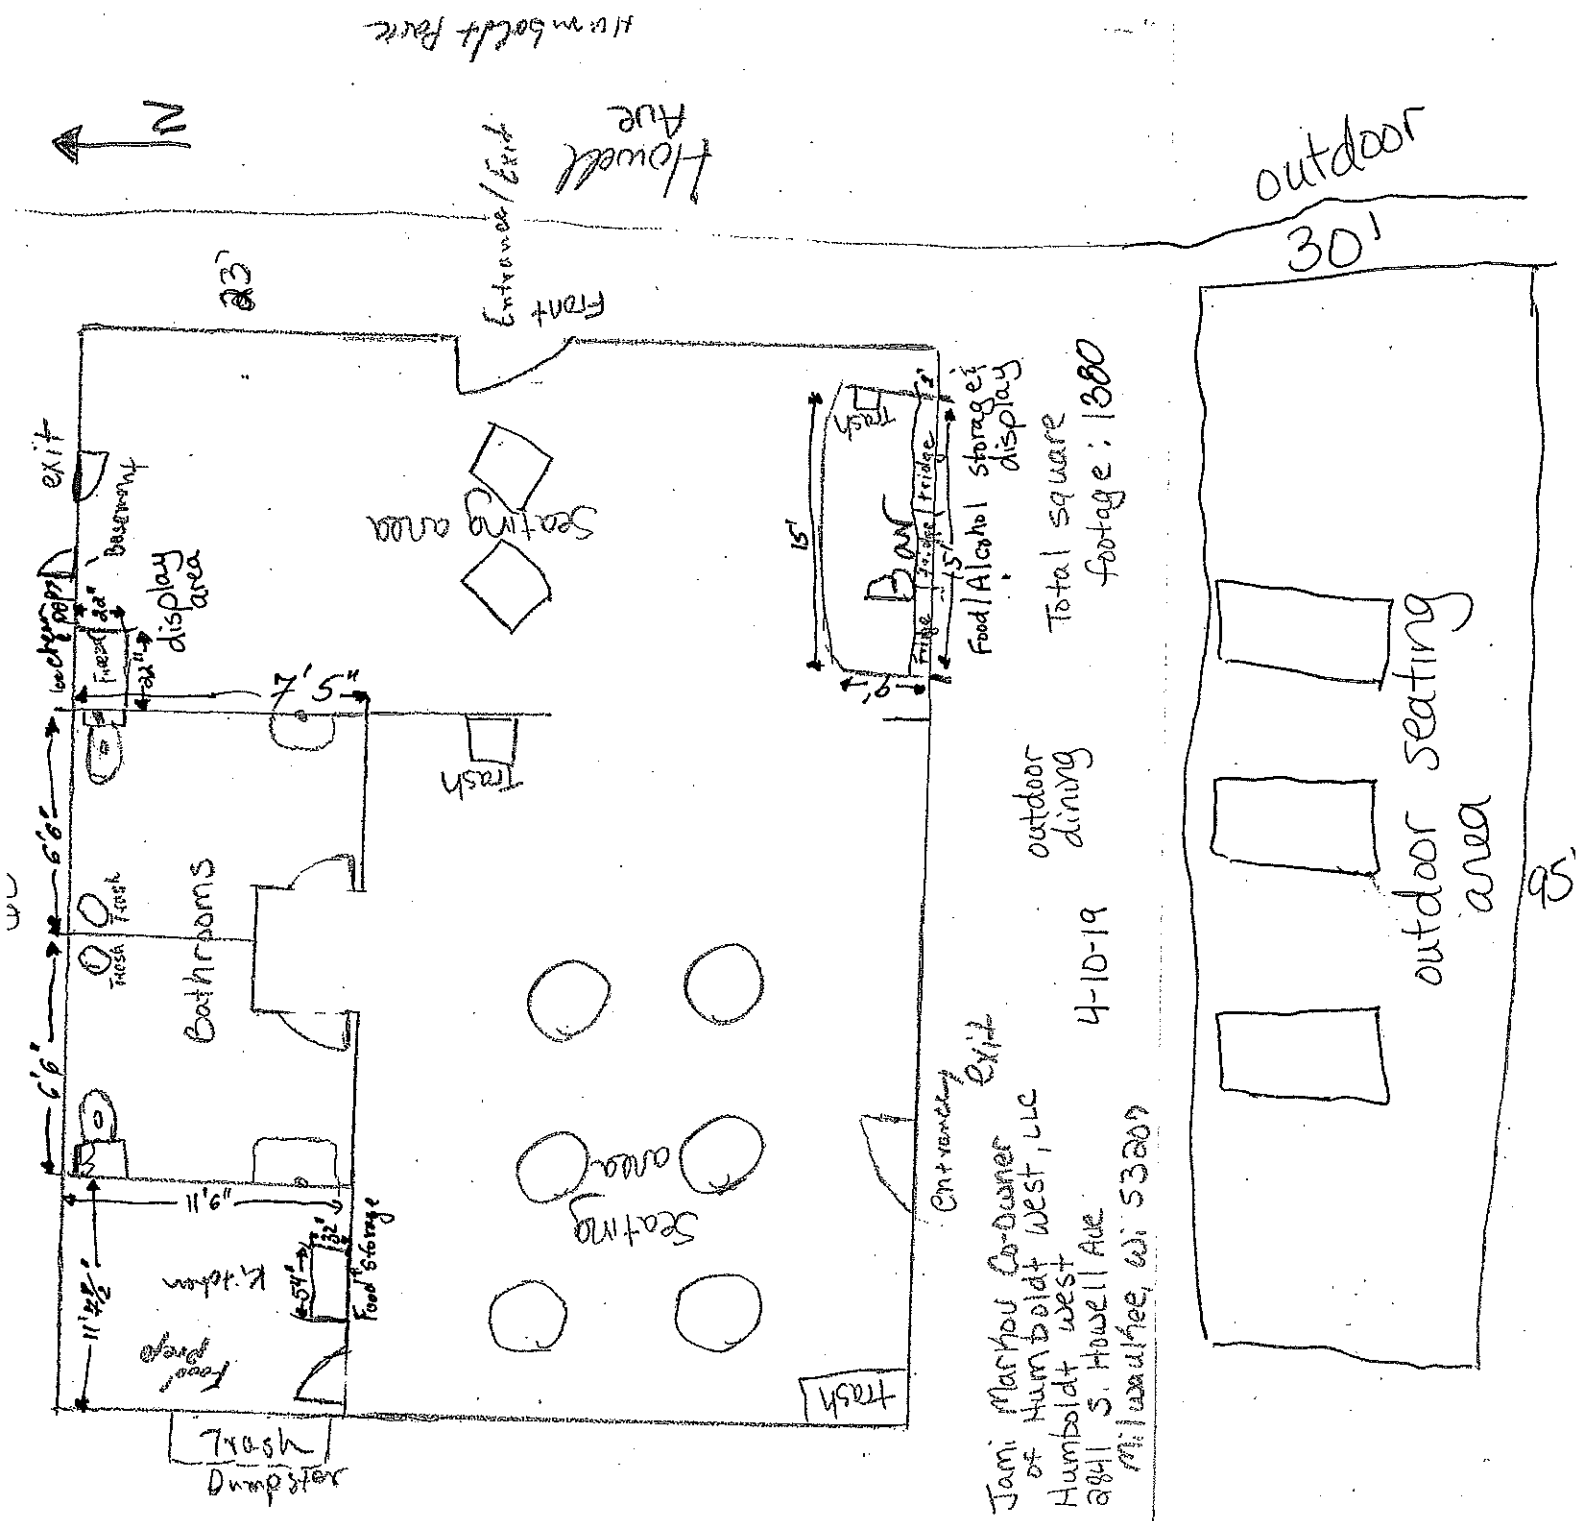 Humboldt Park
N
Howell
Ave
Entrance/Exit
Front
23'
outdoor
30'
exit
Basement
22"
22"
display
area
7' 5"
Seating area
15'
Trash
Bar
2'
Fridge
Fridge
Fridge
15'
6'
Food/Alcohol storage &
display
Total square
footage: 1380
Trash
6'6"
6'6"
Trash
Trash
Bathrooms
outdoor
dining
outdoor seating
area
95'
11'9"
Kitchen
54"
32"
Food storage
Food
Prep
Seating
area
entrance/
exit
trash
Trash
Dumpster
Jami Markou Co-owner
of Humboldt West, LLC
Humboldt West
2841 S. Howell Ave
Milwaukee, Wi 53207
4-10-19